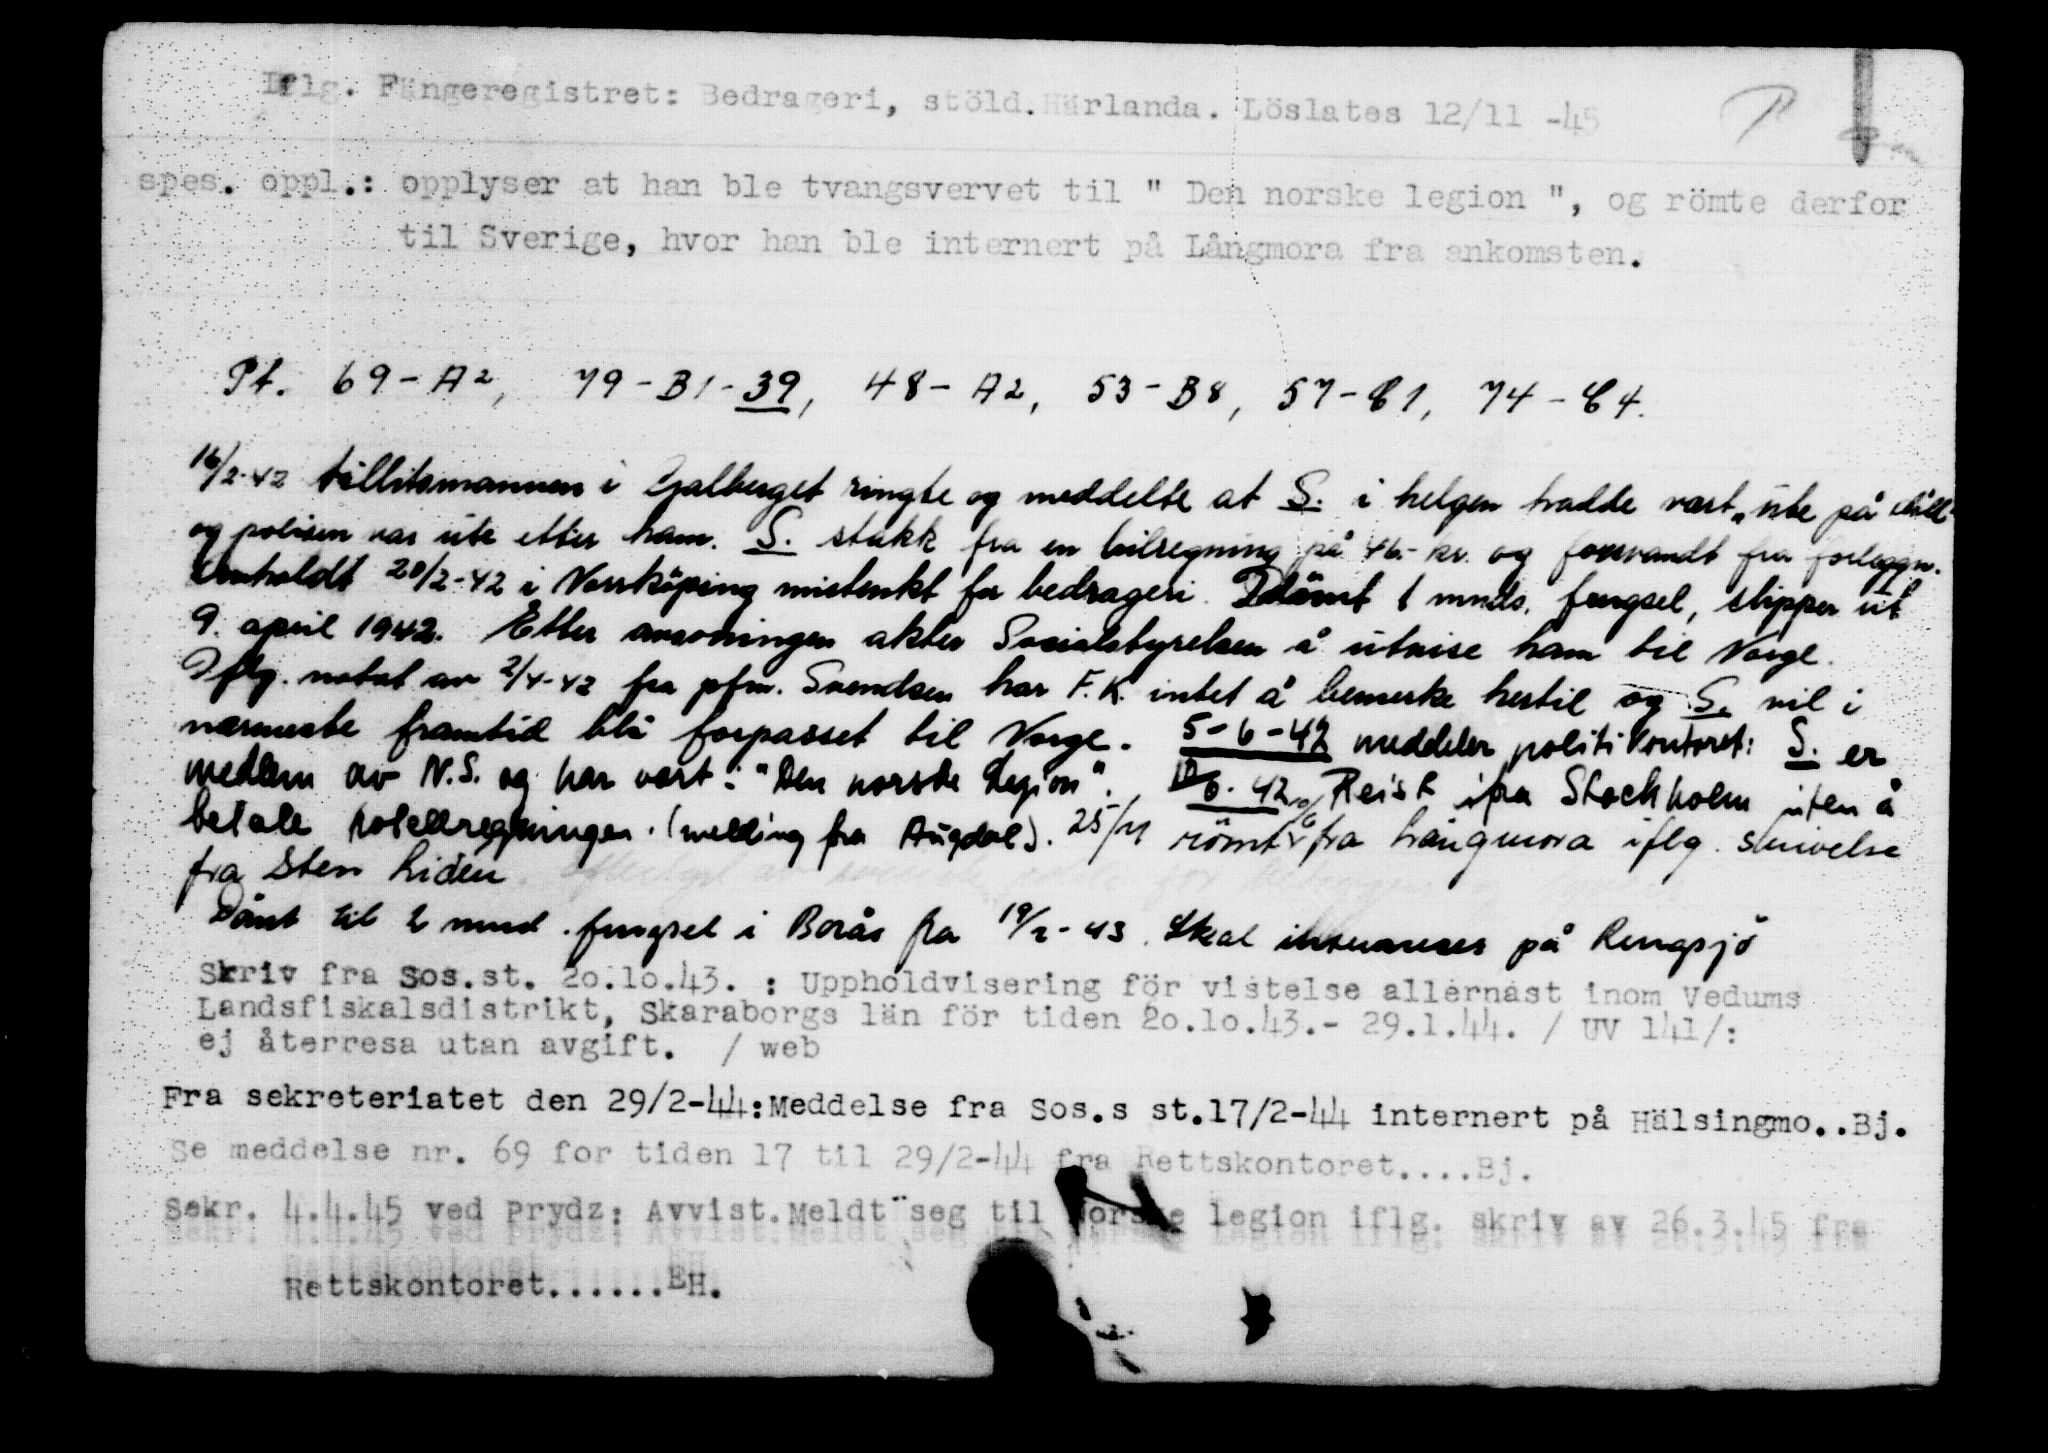 Iflg. Fångeregistret: Bedrageri, stöld. Härlanda. Löslates 12/11 -45
spes. oppl.: opplyser at han ble tvangsvervet til " Den norske legion ", og römte derfor
til Sverige, hvor han ble internert på Långmora fra ankomsten.
Pt. 69-A2, 79-B1-39, 48-A2, 53-B8, 57-C1, 74-C4.
16/2-42 tillitsmannen i Galberget ringte og meddelte at S. i helgen hadde vært "ute på
og polisen var ute etter ham. S. stakk fra en bilregning på 46.- kr. og forsvandt fra forleggn.
Anholdt 20/2-42 i Norrköping mistenkt for bedrageri. Idömt 1 mnds. fengsel, slipper ut
9. april 1942. Etter soningen akter Socialstyrelsen å utvise ham til Norge.
Iflg. notat av 2/4-42 fra pfm. Svendsen har F.K. intet å bemerke hertil og S. vil i
nærmeste framtid bli forpasset til Norge. 5-6-42 meddeler politikontoret: S. er
medlem av N.S. og har vært i "Den norske Legion". 6.42 Reist ifra Stockholm uten å
betale hotellregningen. (melding fra Augdal). 25/ römt fra Långmora iflg. skrivelse
fra Sten Liden
Dömt til 2 mnd. fengsel i Borås fra 19/2-43. Skal interneres på Rengsjö
Skriv fra Sos.st. 20.10.43. : Uppholdvisering för vistelse allernäst inom Vedums
Landsfiskalsdistrikt, Skaraborgs län för tiden 20.10.43.- 29.1.44. / UV 141/:
ej återresa utan avgift. / web
Fra sekreteriatet den 29/2-44:Meddelse fra Sos.s st.17/2-44 internert på Hälsingmo..Bj.
Se meddelse nr. 69 for tiden 17 til 29/2-44 fra Rettskontoret....Bj.
Sekr. 4.4.45 ved Prydz: Avvist.Meldt seg til Norske legion iflg. skriv av 26.3.45 fra
Rettskontoret......EH.